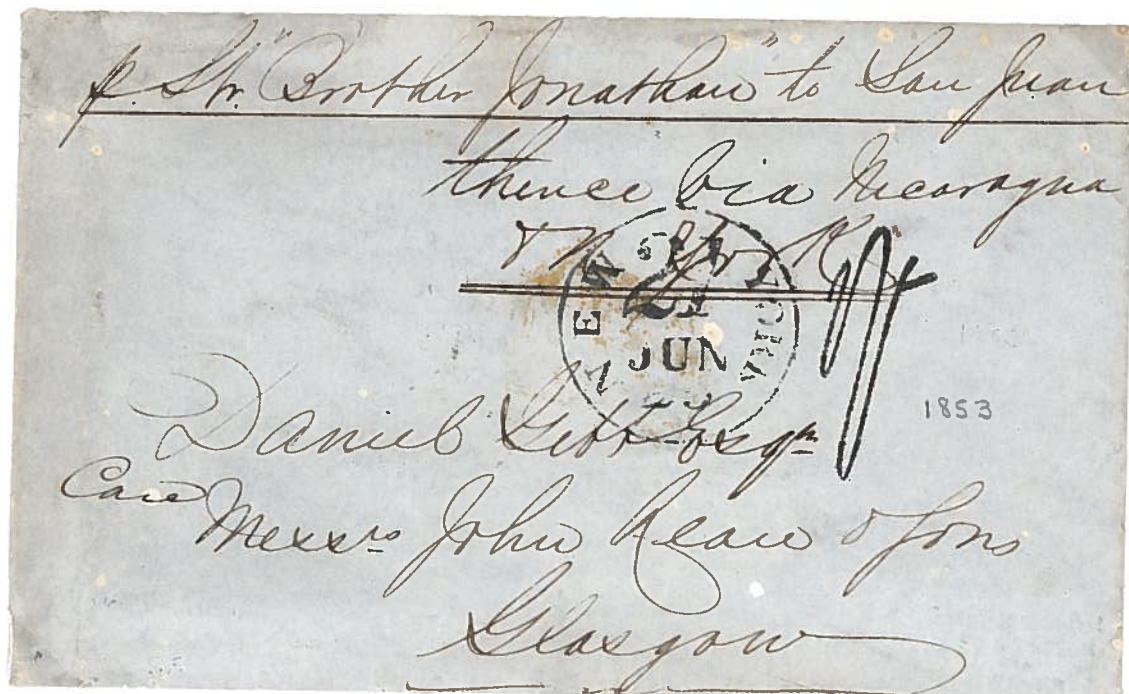 p. Str. "Brother Jonathan" to San Juan
thence via Nicaragua
& N. York
NEW YORK
21
JUN
1853
Daniel Gibb Esqre
Care
Messrs John & Sons
Glasgow